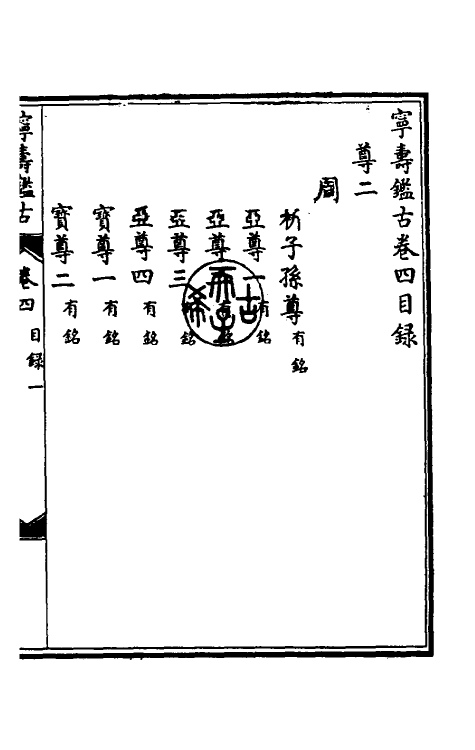 寧壽鑑古卷四目録
尊二
周
析子孫尊有銘
亞尊一有銘
亞尊二有銘
亞尊三有銘
亞尊四有銘
寳尊一有銘
寳尊二有銘
寧壽鑑古 卷四 目録 一
古希天子